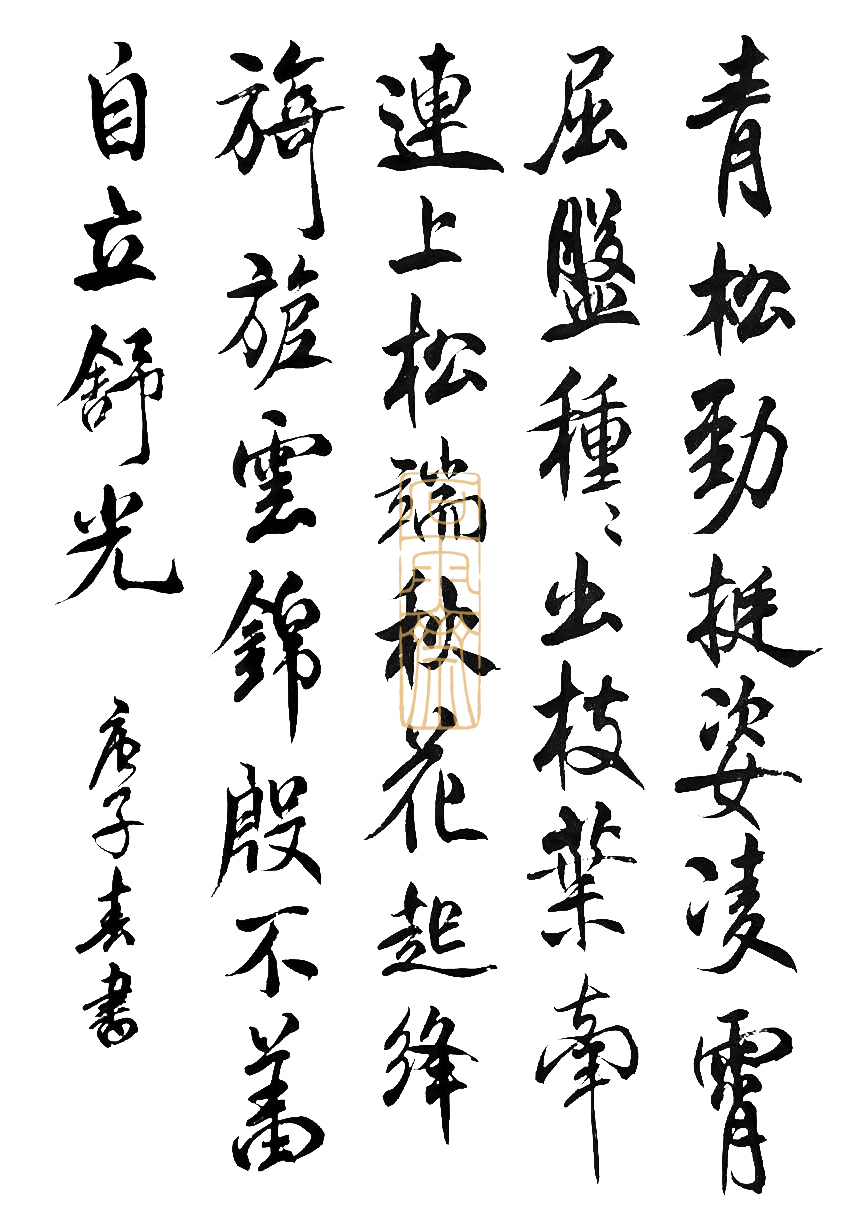 青松勁挺姿凌霄
屈盤種々出枝葉牽
連上松端秋花起絳
旖旎雲錦殷不羞
自立舒光
庚子春書